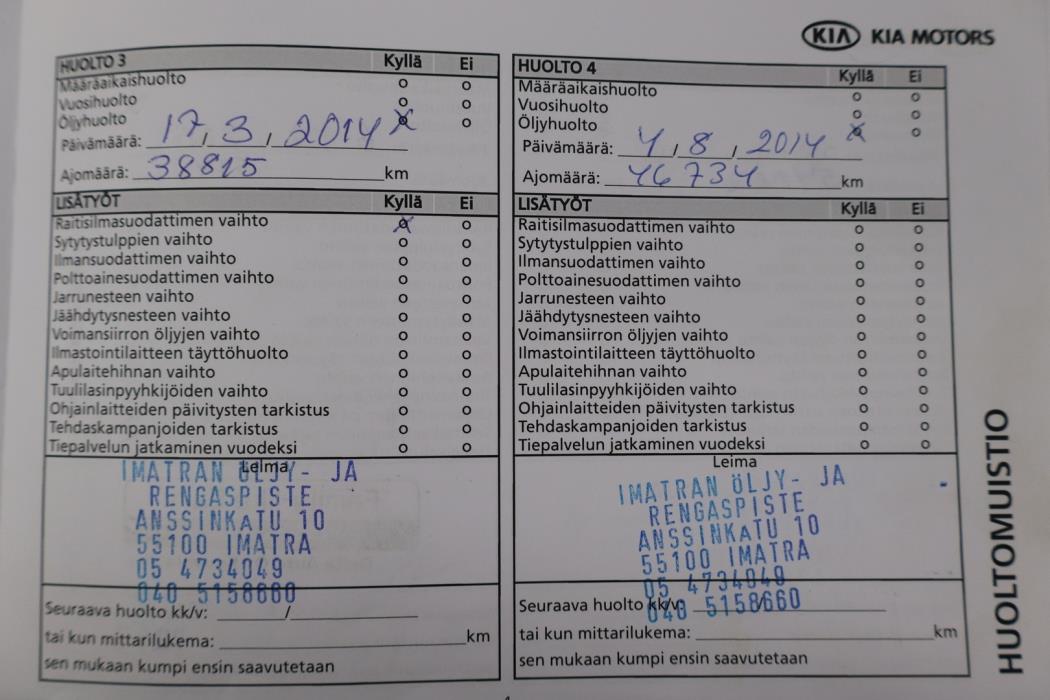 KIA KIA MOTORS
HUOLTO 3 Kyllä Ei
Määräaikaishuolto o o
Vuosihuolto o o
Öljyhuolto X o
Päivämäärä: 17, 3, 2014
Ajomäärä: 38815 km
LISÄTYÖT Kyllä Ei
Raitisilmasuodattimen vaihto X o
Sytytystulppien vaihto o o
Ilmansuodattimen vaihto o o
Polttoainesuodattimen vaihto o o
Jarrunesteen vaihto o o
Jäähdytysnesteen vaihto o o
Voimansiirron öljyjen vaihto o o
Ilmastointilaitteen täyttöhuolto o o
Apulaitehihnan vaihto o o
Tuulilasinpyyhkijöiden vaihto o o
Ohjainlaitteiden päivitysten tarkistus o o
Tehdaskampanjoiden tarkistus o o
Tiepalvelun jatkaminen vuodeksi o o
Leima
IMATRAN ÖLJY- JA
RENGASPISTE
ANSSINKATU 10
55100 IMATRA
05 4734049
040 5158660
Seuraava huolto kk/v: /
tai kun mittarilukema: km
sen mukaan kumpi ensin saavutetaan
HUOLTO 4 Kyllä Ei
Määräaikaishuolto o o
Vuosihuolto o o
Öljyhuolto X o
Päivämäärä: 4, 8, 2014
Ajomäärä: 46734 km
LISÄTYÖT Kyllä Ei
Raitisilmasuodattimen vaihto o o
Sytytystulppien vaihto o o
Ilmansuodattimen vaihto o o
Polttoainesuodattimen vaihto o o
Jarrunesteen vaihto o o
Jäähdytysnesteen vaihto o o
Voimansiirron öljyjen vaihto o o
Ilmastointilaitteen täyttöhuolto o o
Apulaitehihnan vaihto o o
Tuulilasinpyyhkijöiden vaihto o o
Ohjainlaitteiden päivitysten tarkistus o o
Tehdaskampanjoiden tarkistus o o
Tiepalvelun jatkaminen vuodeksi o o
Leima
IMATRAN ÖLJY- JA
RENGASPISTE
ANSSINKATU 10
55100 IMATRA
05 4734049
040 5158660
Seuraava huolto kk/v: /
tai kun mittarilukema: km
sen mukaan kumpi ensin saavutetaan
HUOLTOMUISTIO